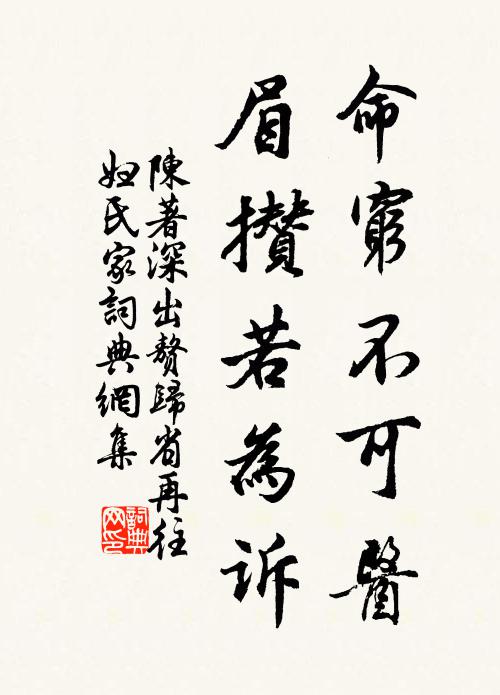 命窮不可醫
眉攢若為訴
陳著深出贅歸省再往
妞氏家詞典網集
詞典网印